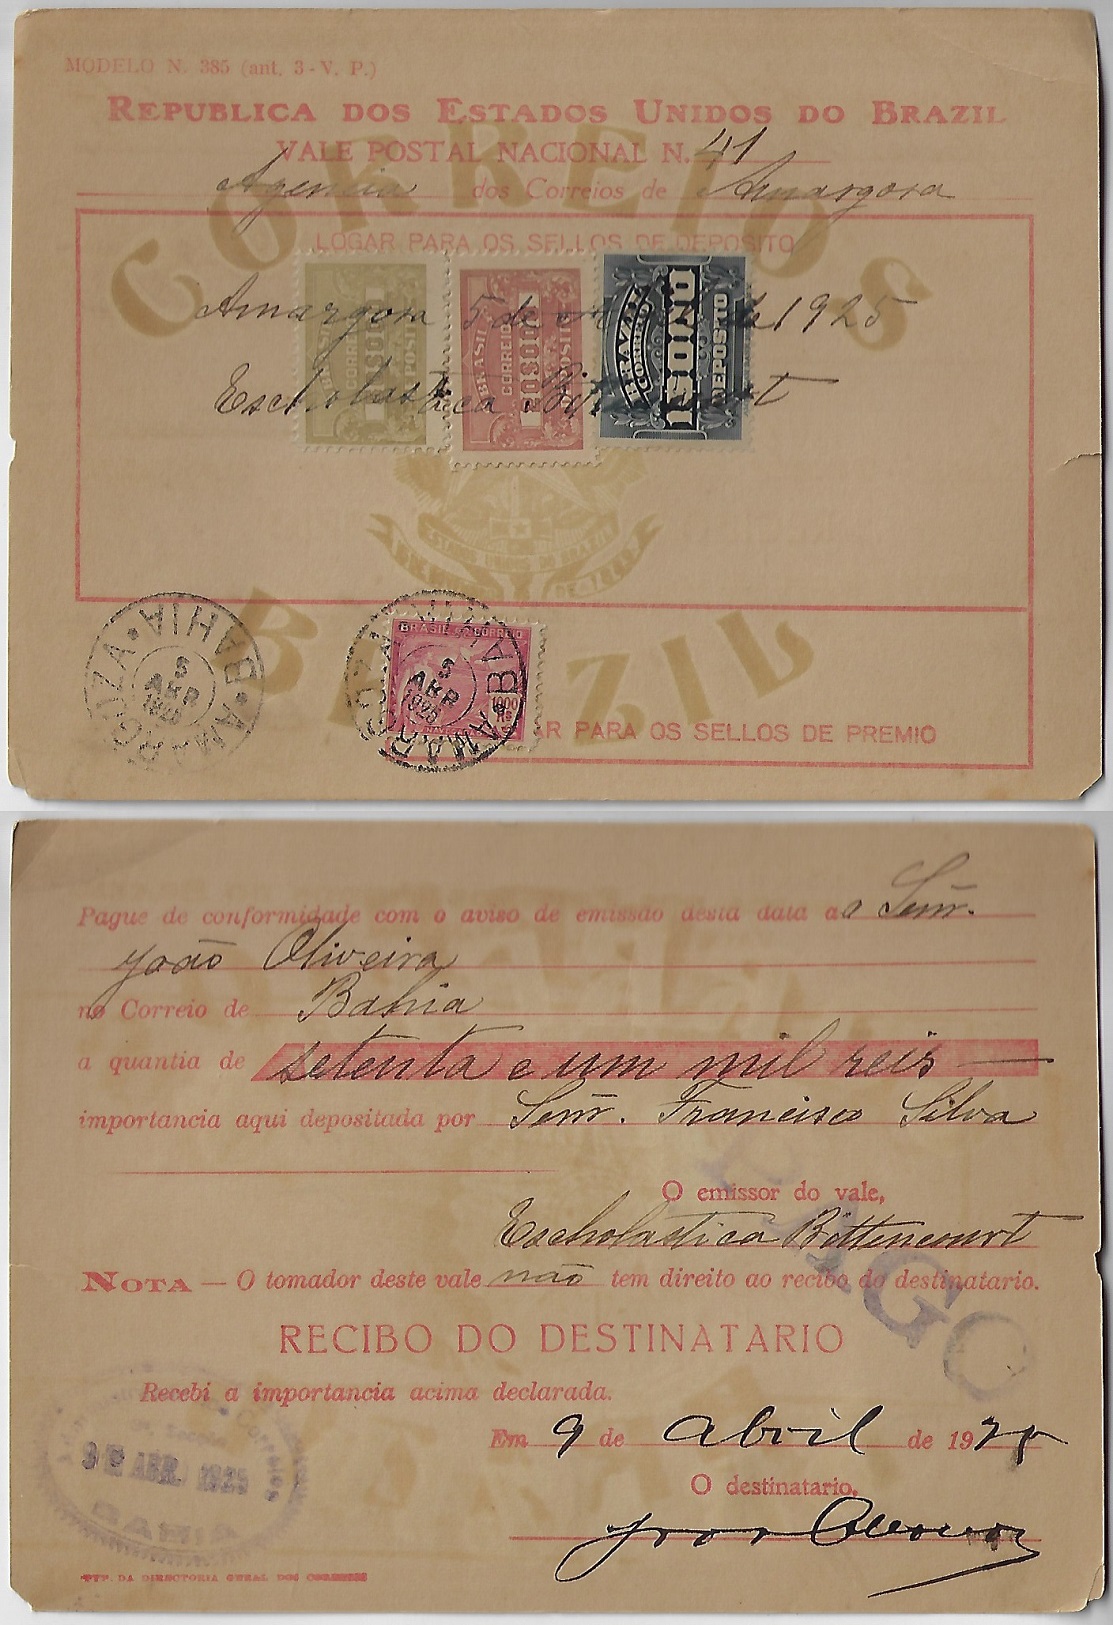 MODELO N. 385 (ant. 3-V. P.)
REPUBLICA DOS ESTADOS UNIDOS DO BRAZIL
VALE POSTAL NACIONAL N. 41
Agencia dos Correios de Amargosa
CORREIOS
LOGAR PARA OS SELLOS DE DEPOSITO
BRASIL CORREIO
BRASIL CORREIO 20$000 DEPOSITO
CORREIO DEPOSITO
Amargosa 5 de de 1925
Escholastica Bittencourt
BRAZIL
BAHIA AMARGOZA
5 ABR 1925
BRASIL CORREIO
1000 RS
BAHIA AMARGOZA
5 ABR 1925
LOGAR PARA OS SELLOS DE PREMIO
Pague de conformidade com o aviso de emissão desta data a o Sem̃r.
João Oliveira
no Correio de Bahia
a quantia de setenta e um mil reis
importancia aqui depositada por Sem̃r. Francisco Silva
O emissor do vale,
Escholastica Bittencourt
NOTA — O tomador deste vale não tem direito ao recibo do destinatario.
PAGO
RECIBO DO DESTINATARIO
Recebi a importancia acima declarada.
Em 9 de Abril de 1925
O destinatario,
Correios
9 DE ABR. 1925
BAHIA
TYP. DA DIRECTORIA GERAL DOS CORREIOS